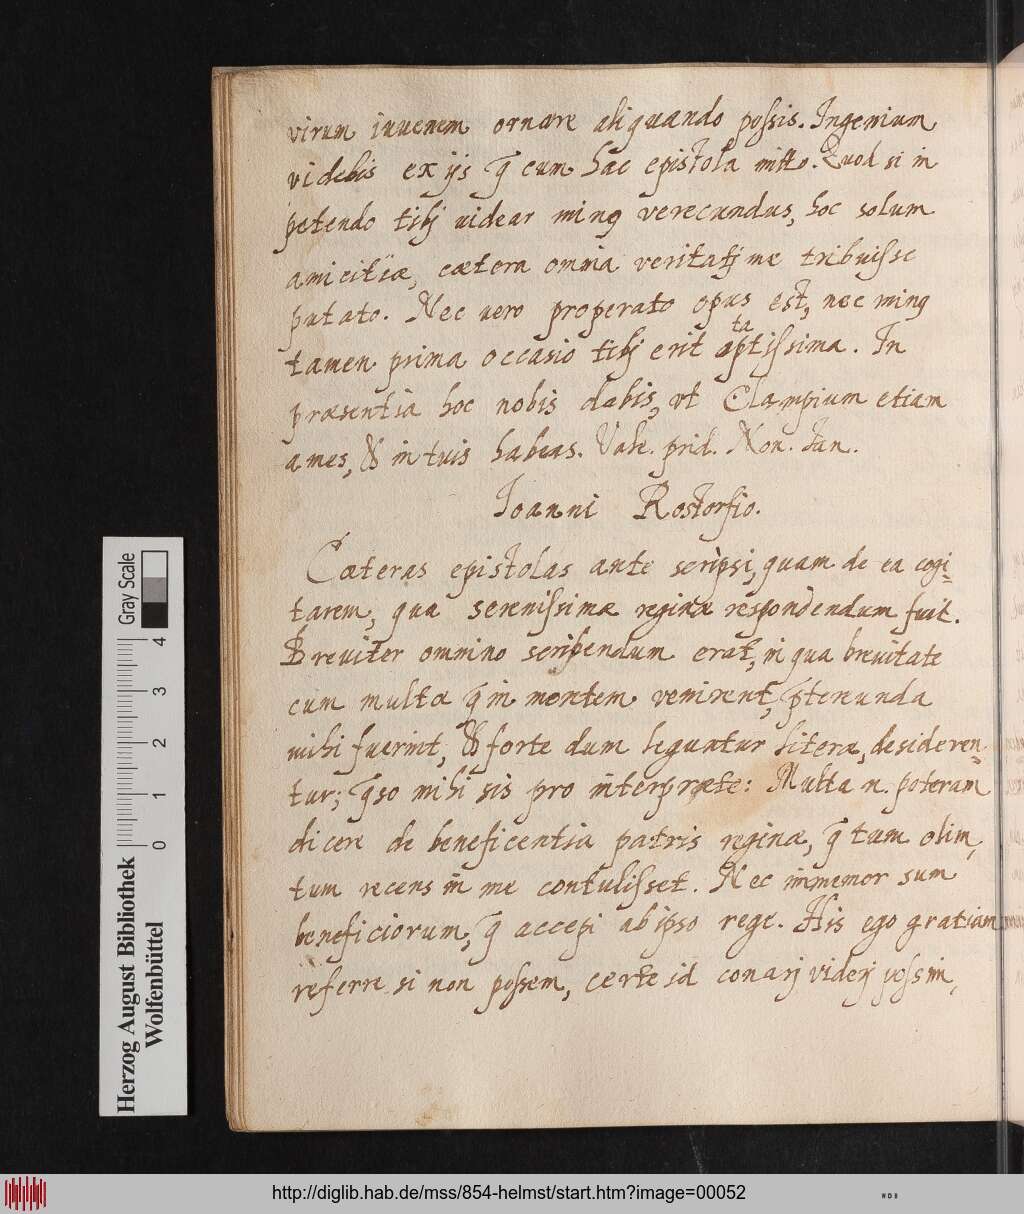 virum iuvenem ornare aliquando possis. Ingenium
videbis ex ijs q̄ cum hac epistola mitto. Quod si in
petendo tibj uidear minꝰ verecundus, hoc solum
amicitiæ, cætera omnia veritatj me tribuisse
putato. Nec vero properato opus est, nec minꝰ
ta
tamen prima occasio tibj erit aptissima. In
præsentia hoc nobis dabis, vt Clampium etiam
ames, & in tuis habeas. Vale. prid. Non. Jan.
Joanni Rostorfio.
Cæteras epistolas ante scripsi, quam de ea cogi=
tarem, qua serenissimæ reginæ respondendum fuit.
Breviter omnino scribendum erat, in qua brevitate
cum multa q̄ in mentem venirent, p̄tereunda
mihi fuerint, & forte dum leguntur literæ, desideren=
tur; q̄so mihi sis pro interpræte: Multa n. poteram
dicere de beneficentia patris reginæ, q̄ tum olim,
tum recens in me contulisset. Nec immemor sum
beneficiorum, q̄ accepi ab ipso rege. His ego gratiam
referre si non possem, certe id conarj viderj possim,
Herzog August Bibliothek
Wolfenbüttel
0 1 2 3 4
Gray Scale
http://diglib.hab.de/mss/854-helmst/start.htm?image=00052
WDB